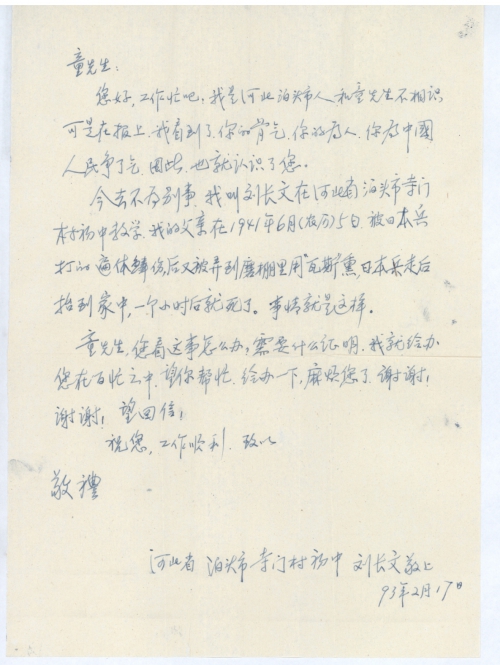 童先生：
您好，工作忙吧，我是河北泊头市人 和童先生不相识
可是在报上.我看到了.你的骨气.你的为人.你为中國
人民争了气.因此.也就认识了您。
今去不为别事.我叫刘长文在河北省泊头市寺门
村初中教学.我的父亲在1941年6月(农历)5日.被日本兵
打的遍体鳞伤后又被弄到磨棚里用"瓦斯"熏日本兵走后
抬到家中,一个小时后就死了。事情就是这样。
童先生,您看这事怎么办,需要什么证明.我就给办
您在百忙之中.望你帮忙.给办一下,麻烦您了.谢谢!
谢谢! 望回信!
祝您,工作顺利.致以
敬禮
河北省 泊头市寺门村初中 刘长文敬上
93年2月17日